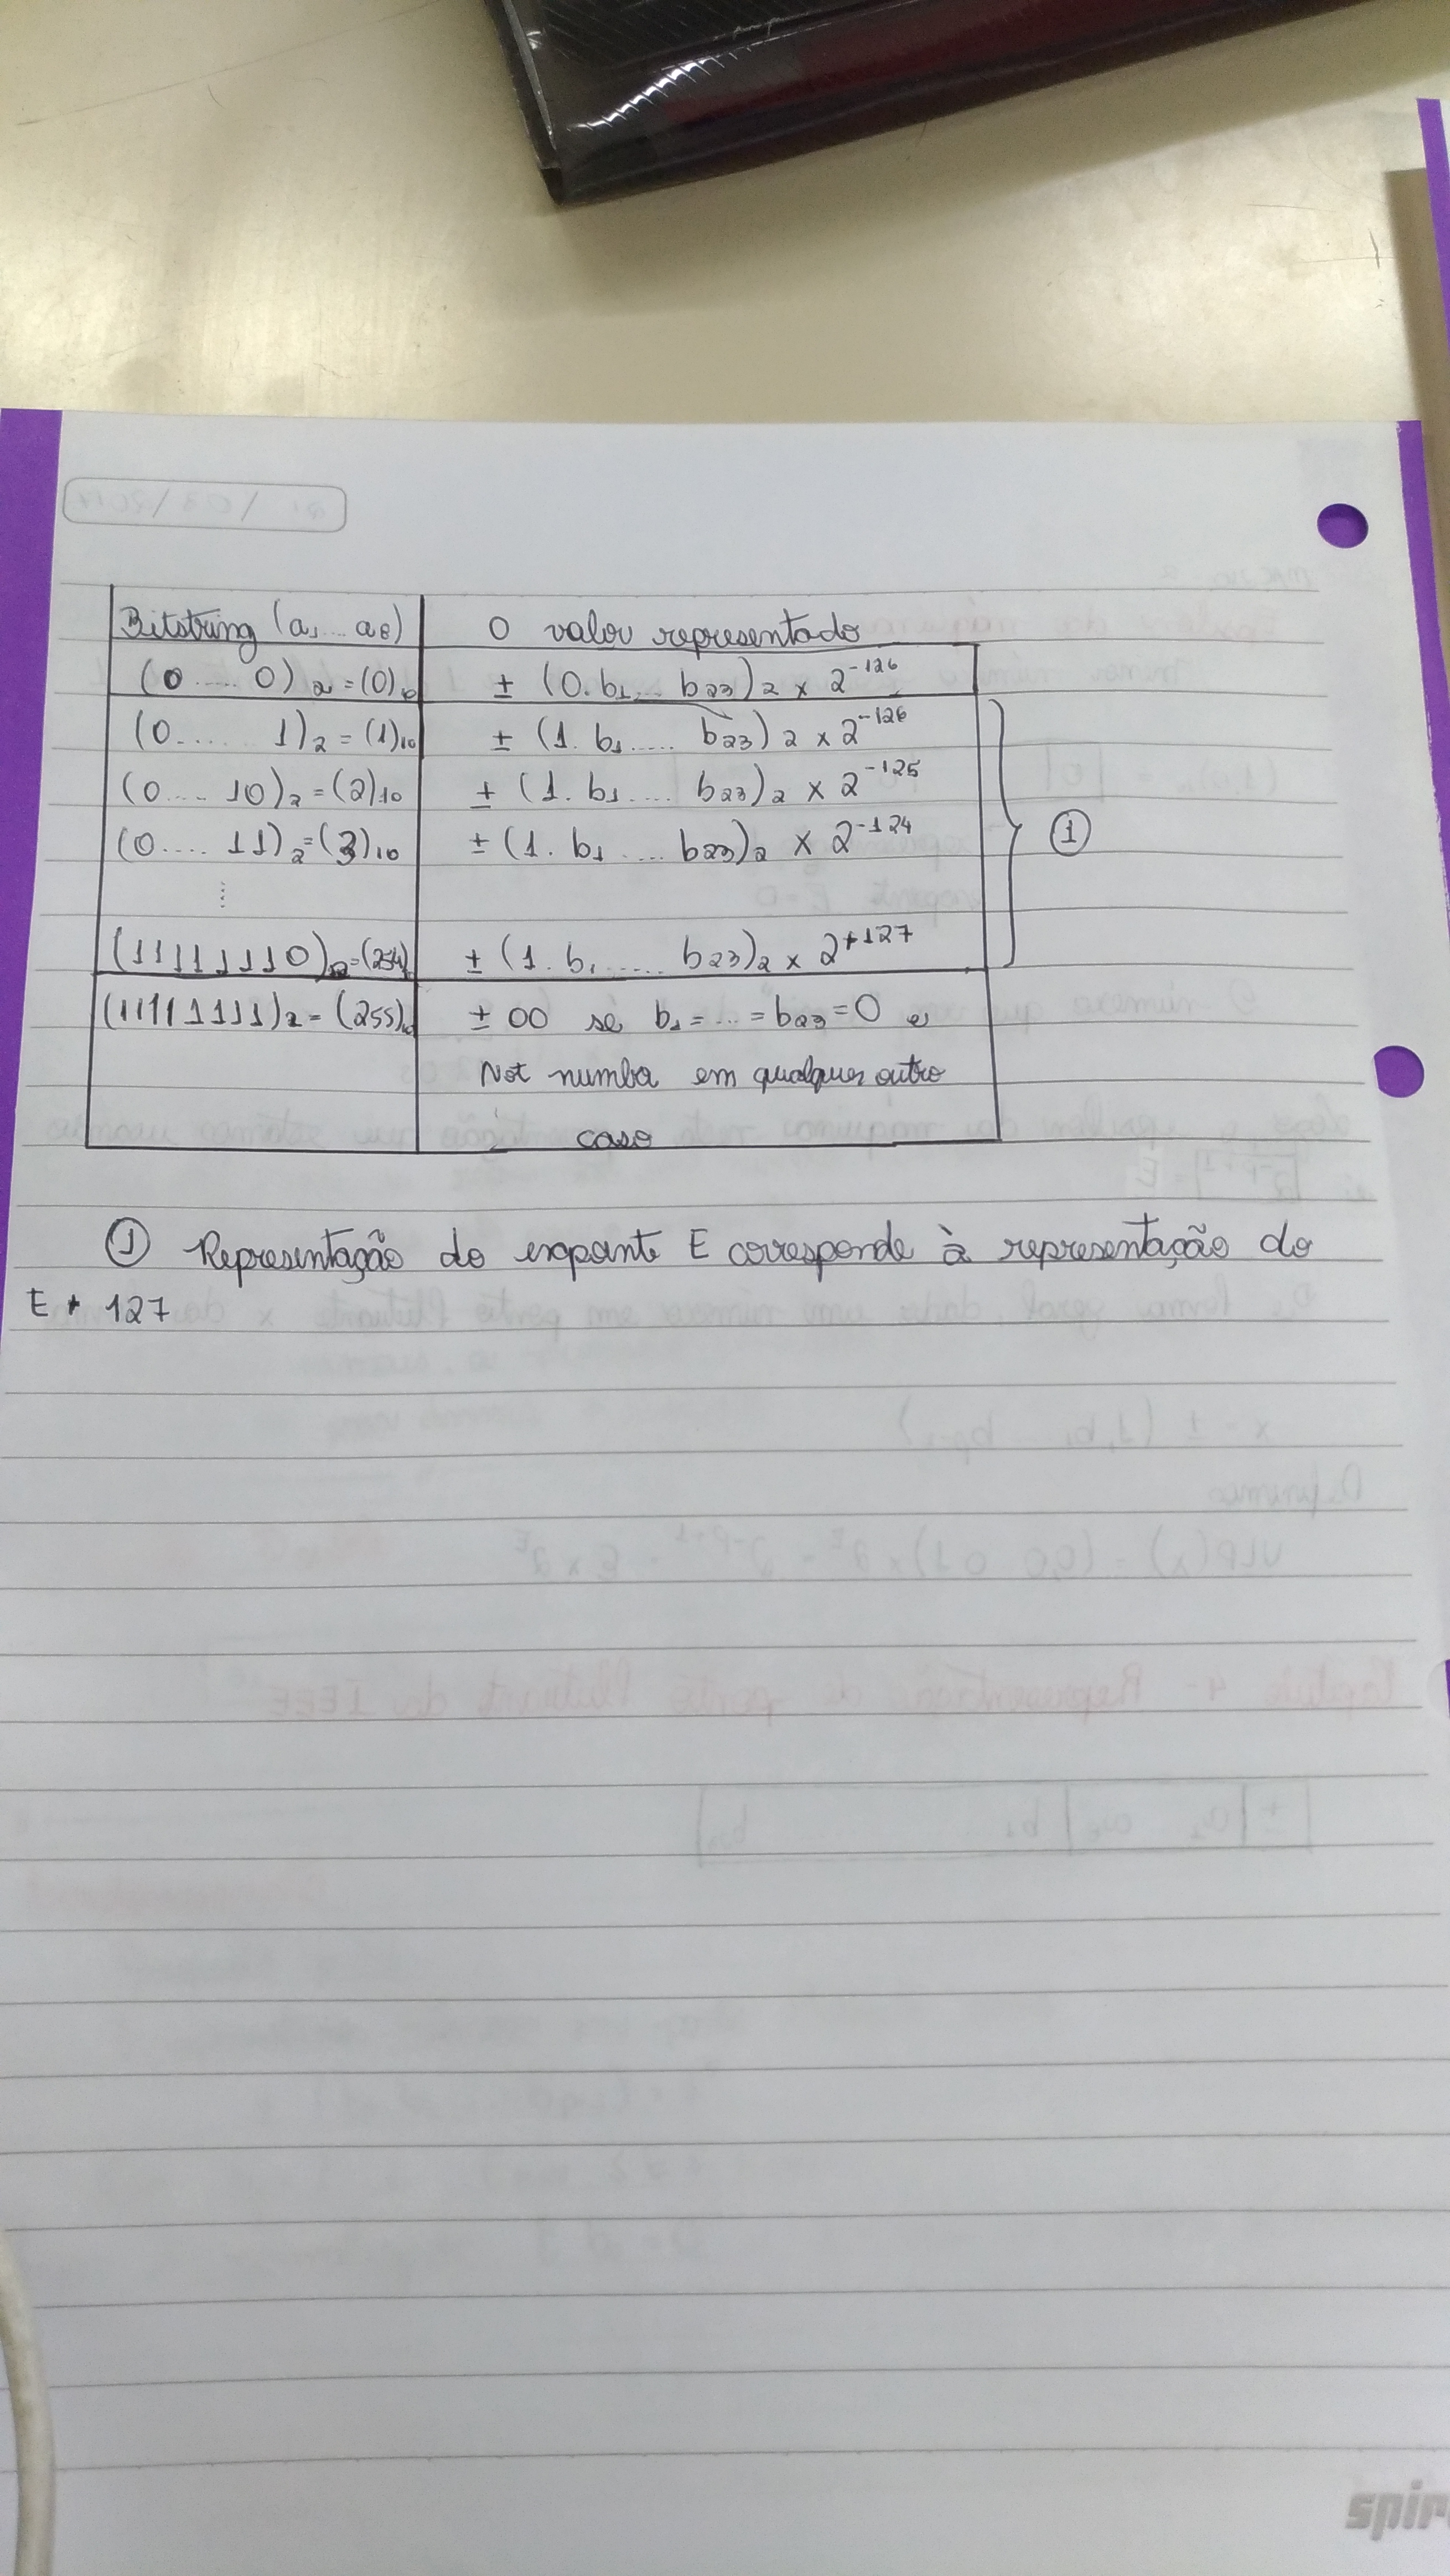 Bitstring (a₁ ... a₈) O valor representado
(0 ..... 0)₂ = (0)₁₀ ± (0. b₁ ... b₂₃)₂ × 2⁻¹²⁶
(0 ..... 1)₂ = (1)₁₀ ± (1. b₁ ..... b₂₃)₂ × 2⁻¹²⁶
(0 .... 10)₂ = (2)₁₀ ± (1. b₁ .... b₂₃)₂ × 2⁻¹²⁵
(0 .... 11)₂ = (3)₁₀ ± (1. b₁ .... b₂₃)₂ × 2⁻¹²⁴
①
⋮
(11111110)₂ = (254)₁₀ ± (1. b₁ ..... b₂₃)₂ × 2⁺¹²⁷
(11111111)₂ = (255)₁₀ ± ∞ se b₁ = ... = b₂₃ = 0 e
Not number em qualquer outro
caso
① Representação do expoente E corresponde à representação do
E + 127
spir